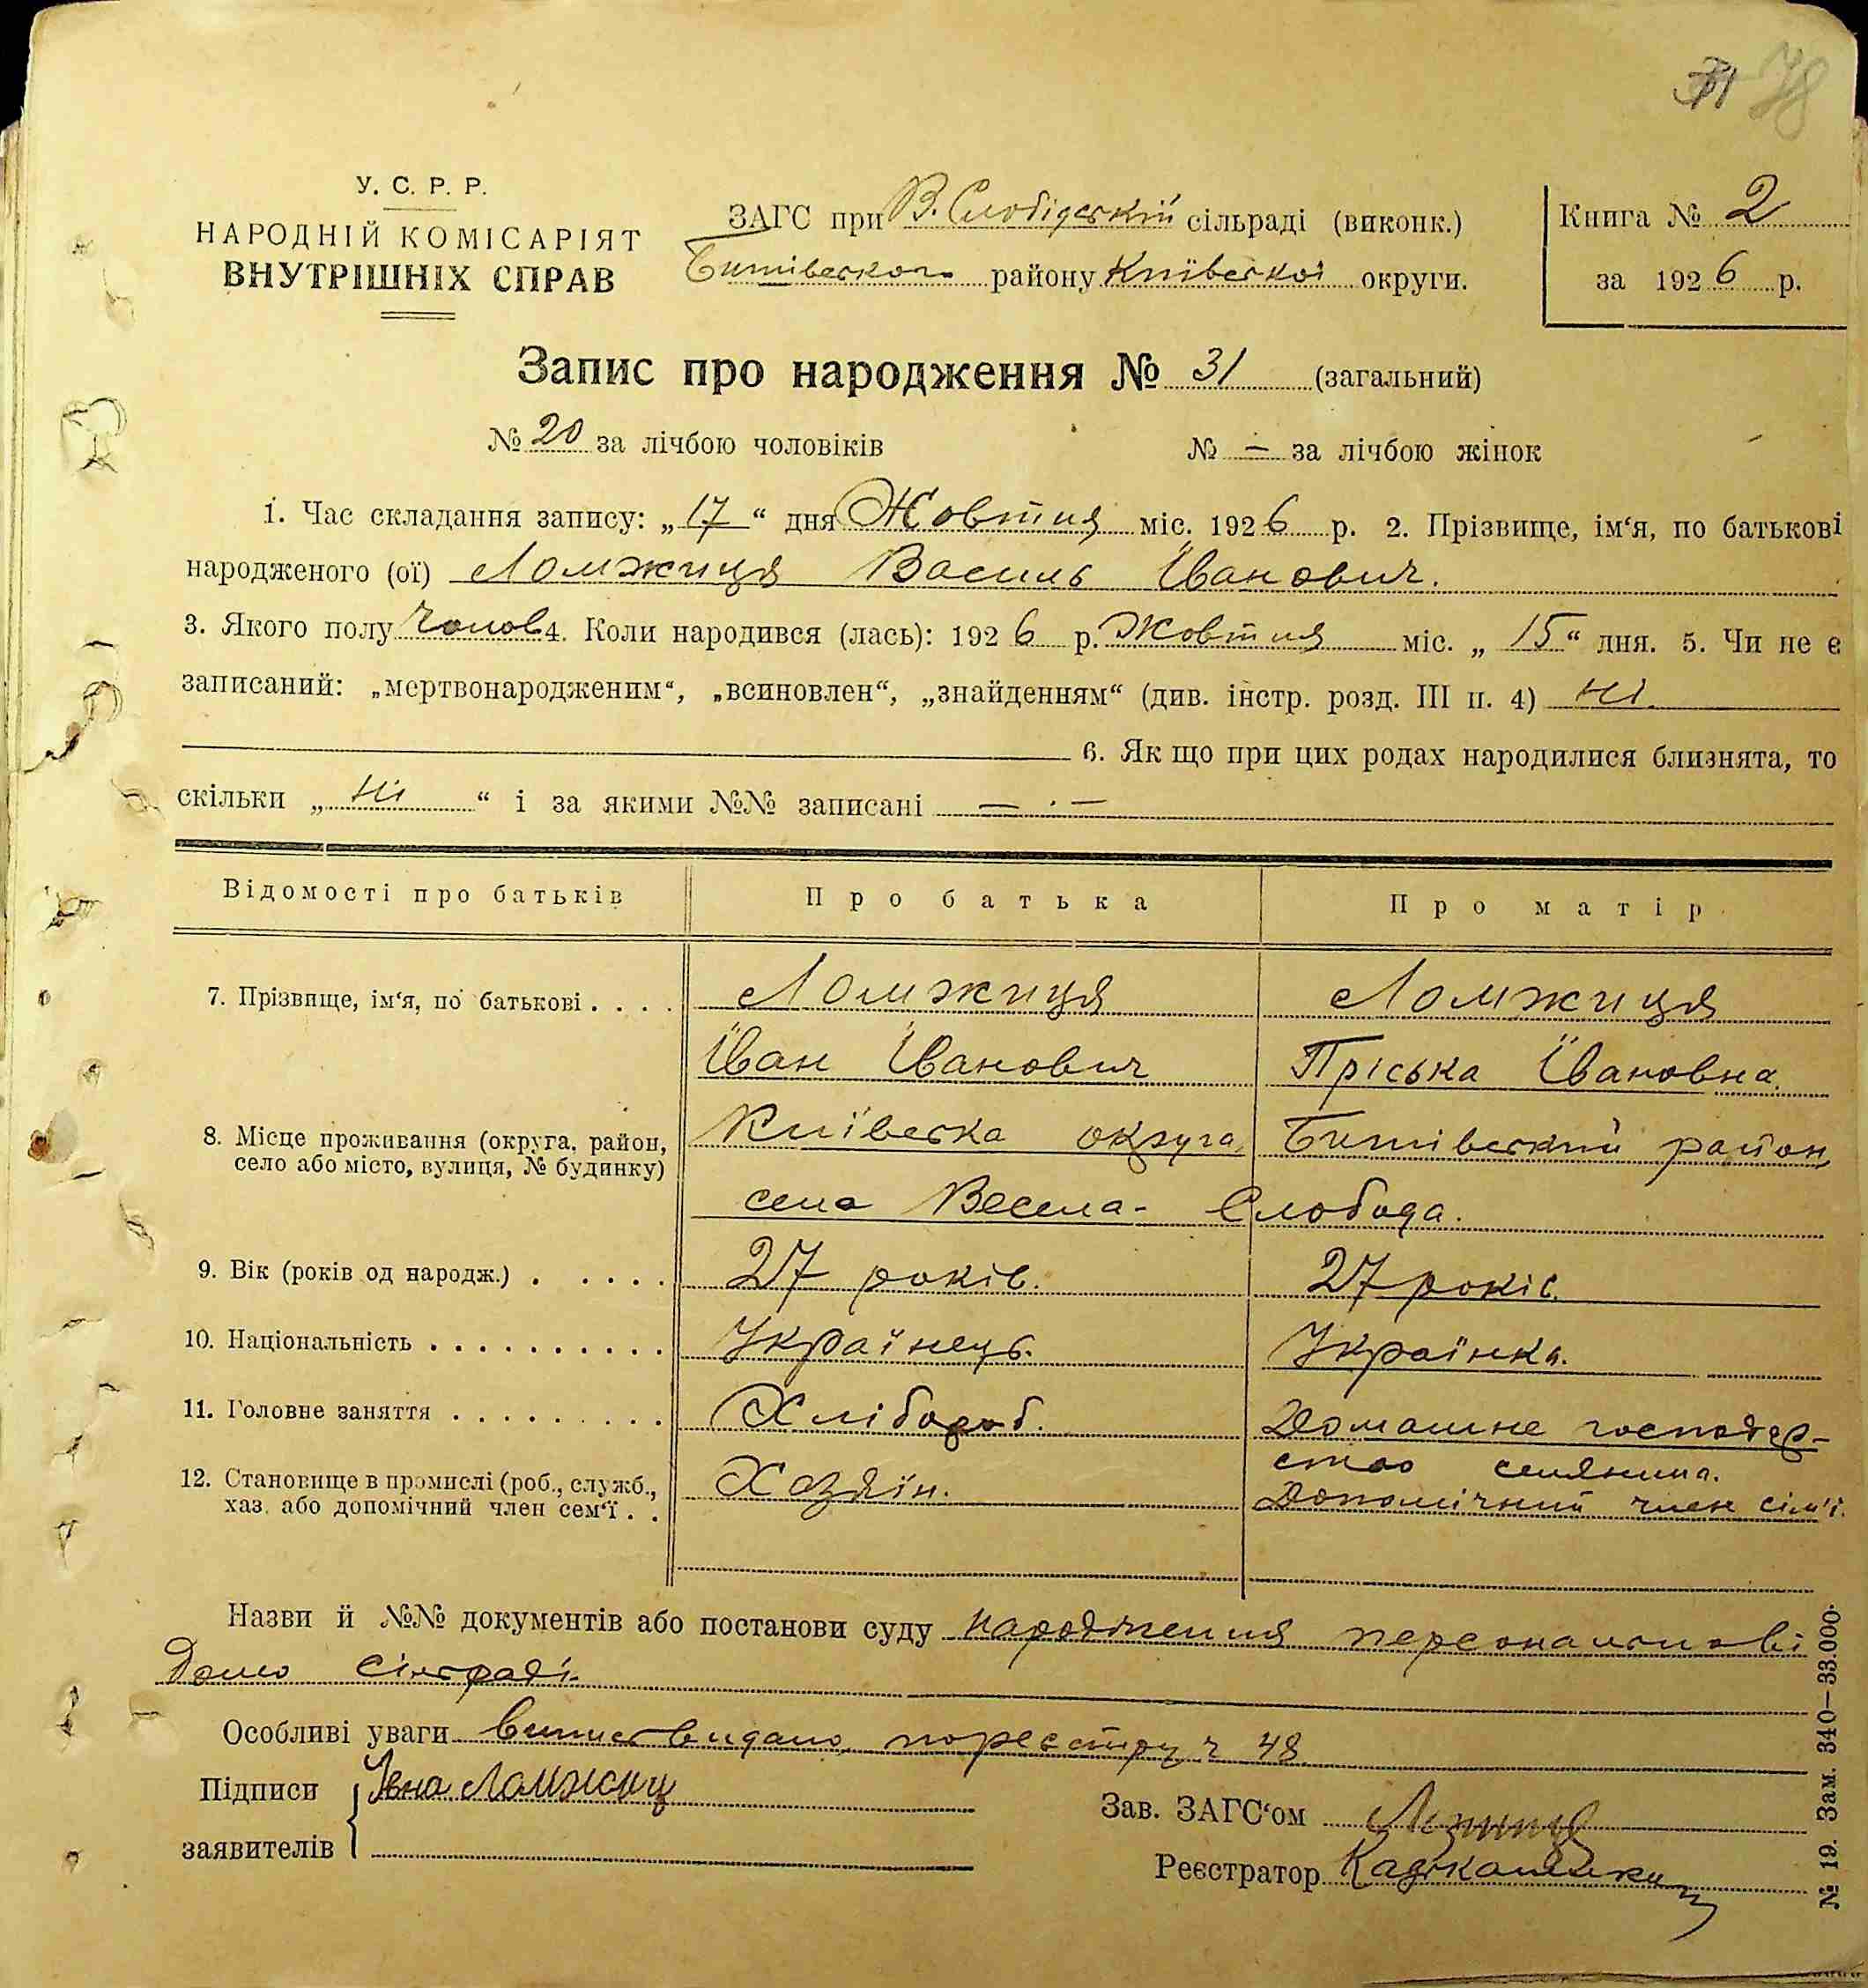 78
У. С. Р. Р.
НАРОДНІЙ КОМІСАРІЯТ
ВНУТРІШНІХ СПРАВ
ЗАГС при В. Слобідській сільраді (виконк.)
району Київської округи.
Книга № 2
за 1926 р.
Запис про народження № 31 (загальний)
№ 20 за лічбою чоловіків № — за лічбою жінок
1. Час складання запису: „17“ дня Жовтня міс. 1926 р. 2. Прізвище, ім‘я, по батькові
народженого (ої) Ломжиця Василь Іванович.
3. Якого полу чолов 4. Коли народився (лась): 1926 р. Жовтня міс. „15“ дня. 5. Чи не є
записаний: „мертвонародженим“, „всиновлен“, „знайденням“ (див. інстр. розд. III п. 4) ні.
6. Як що при цих родах народилися близнята, то
скільки „ні“ і за якими №№ записані — . —
Відомості про батьків Про батька Про матір
7. Прізвище, ім‘я, по батькові . . . . Ломжиця Ломжиця
Їван Їванович Пріська Ївановна.
8. Місце проживання (округа, район, село або місто, вулиця, № будинку) Київська округа, район,
села Весела-Слобода.
9. Вік (років од народж.) . . . . . 27 років. 27 років.
10. Національність . . . . . . . . . . Українець. Українка.
11. Головне заняття . . . . . . . . . Хлібороб. Домашне господар-
ство селянина.
12. Становище в промислі (роб., служб., хаз. або допомічний член сем‘ї . . Хазяїн. Допомічний член сім'ї.
Назви й №№ документів або постанови суду народження
сільраді.
Особливі уваги видано по реєстру ч 48
Підписи
заявителів
Зав. ЗАГС‘ом
Реєстратор
№ 19. Зам. 340—33.000.